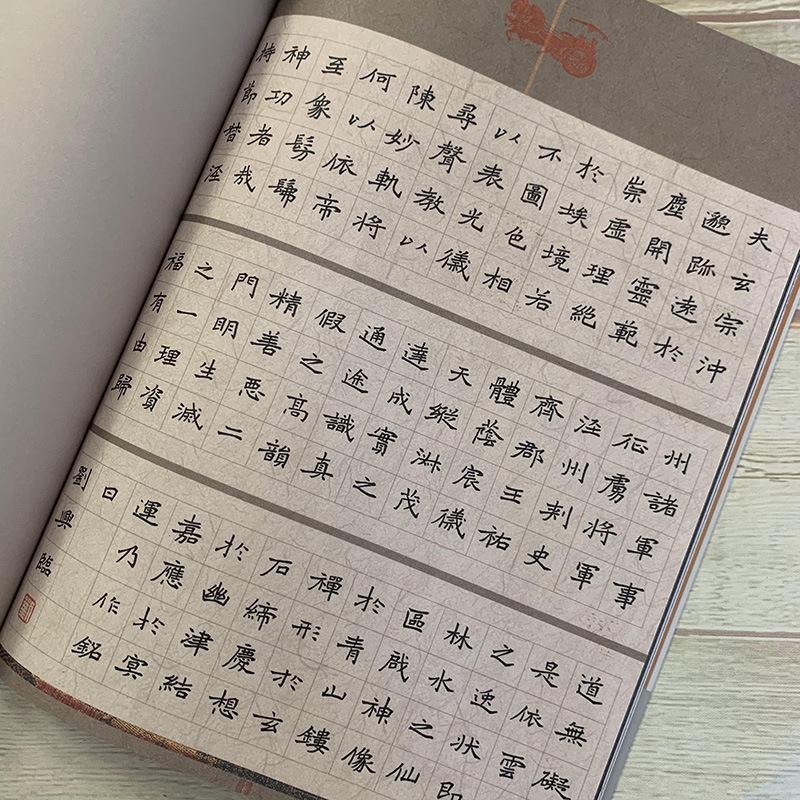 夫玄宗沖
邈跡遠於
塵開靈範
崇虛理絕
於埃境若
不圖色相
以表光儀
尋聲教以
陳妙軌將
何以依帝
至象髣髴
神功者哉
持節督涇
州諸軍事
征虜將軍
涇州刺史
齊郡王祐
體蔭宸儀
天縱淋茂
達成實之
通途識真
假之高韻
精善惡二
門明生滅
之一理資
福有由歸
道無礙
是依雲
之逸狀即
林水之仙
區啟神像
於青山鏤
禪形於玄
石締慶想
於幽津結
嘉應於冥
運乃作銘
曰
劉興臨